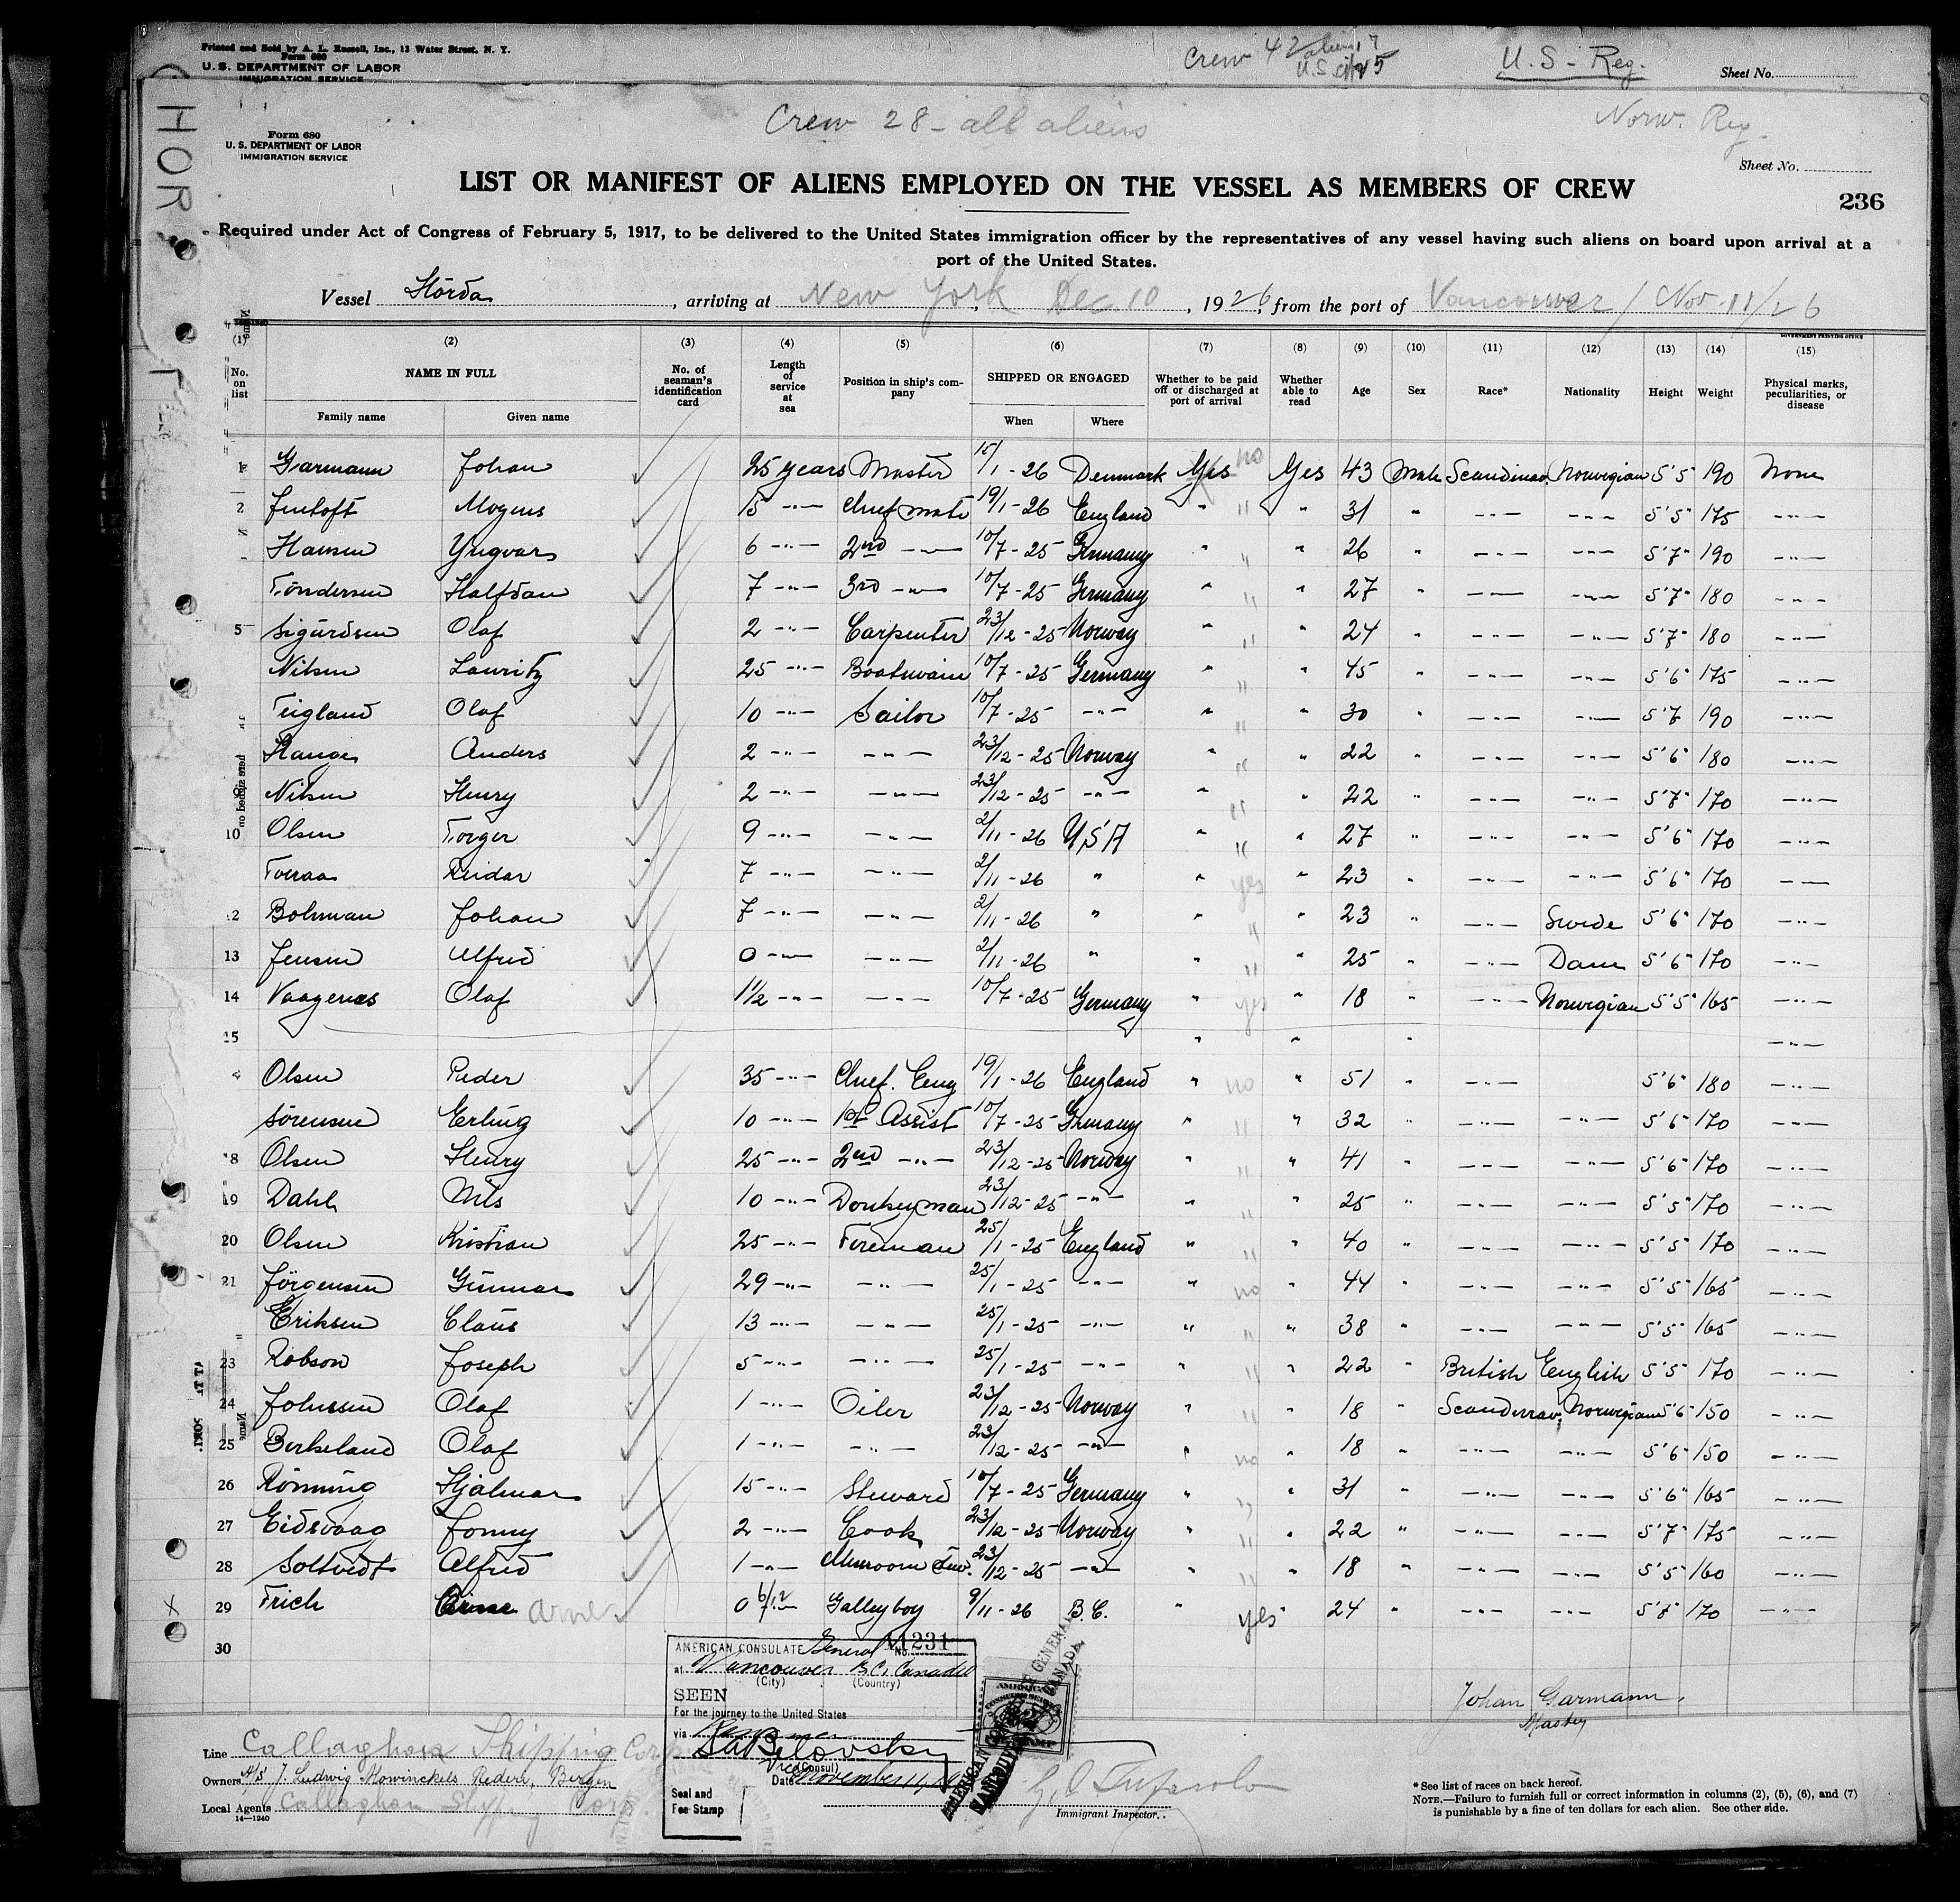 Printed and Sold by A. L. Russell, Inc., 13 Water Street, N. Y.
Form 680
U. S. DEPARTMENT OF LABOR
IMMIGRATION SERVICE
Crew 42 aliens 17
U.S. cit 25
U.S - Reg.
Sheet No.
Crew 28 - all aliens
Norw. Reg.
Form 680
U. S. DEPARTMENT OF LABOR
IMMIGRATION SERVICE
Sheet No.
LIST OR MANIFEST OF ALIENS EMPLOYED ON THE VESSEL AS MEMBERS OF CREW
236
Required under Act of Congress of February 5, 1917, to be delivered to the United States immigration officer by the representatives of any vessel having such aliens on board upon arrival at a
port of the United States.
Vessel Hörda, arriving at New York, Dec 10, 1926, from the port of Vancouver / Nov. 11/26
GOVERNMENT PRINTING OFFICE
(1) (2) (3) (4) (5) (6) (7) (8) (9) (10) (11) (12) (13) (14) (15)
No. on list NAME IN FULL No. of seaman's identification card Length of service at sea Position in ship's company SHIPPED OR ENGAGED Whether to be paid off or discharged at port of arrival Whether able to read Age Sex Race* Nationality Height Weight Physical marks, peculiarities, or disease
Family name Given name When Where
1 Garmann Johan 25 years Master 15/1-26 Denmark Yes no Yes 43 Male Scandinav. Norwegian 5'5" 190 None
2 Jentoft Mogens 15 -"- Chief mate 19/1-26 England " " " 31 " -"- -"- 5'5" 175 -"-
Hansen Yngvar 6 -"- 2nd -"- 10/7-25 Germany " " " 26 " -"- -"- 5'7" 190 -"-
Töndersen Halfdan 7 -"- 3rd -"- 10/7-25 Germany " " " 27 " -"- -"- 5'7" 180 -"-
5 Sigurdsen Olaf 2 -"- Carpenter 23/12-25 Norway " " " 24 " -"- -"- 5'7" 180 -"-
Nilsen Lauritz 25 -"- Boatswain 10/7-25 Germany " " " 45 " -"- -"- 5'6" 175 -"-
Teigland Olaf 10 -"- Sailor 10/7-25 -"- " " " 30 " -"- -"- 5'7 190 -"-
Hauge Anders 2 -"- -"- 23/12-25 Norway " " " 22 " -"- -"- 5'6" 180 -"-
Nilsen Henry 2 -"- -"- 23/12-25 -"- " " " 22 " -"- -"- 5'7" 170 -"-
10 Olsen Torger 9 -"- -"- 2/11-26 USA " " " 27 " -"- -"- 5'6" 170 -"-
Toeraas Reidar 7 -"- -"- 2/11-26 " " yes " 23 " -"- -"- 5'6" 170 -"-
12 Bohman Johan 7 -"- -"- 2/11-26 " " " " 23 " -"- Swede 5'6" 170 -"-
13 Jensen Alfred 0 -"- -"- 2/11-26 " " " " 25 " -"- Dane 5'6" 170 -"-
14 Vaagenes Olaf 1½ -"- -"- 10/7-25 Germany " yes " 18 " -"- Norwegian 5'5" 165 -"-
15 " " " -"-
Olsen Peder 35 -"- Chief. Eng 19/1-26 England " no " 51 " -"- 5'6" 180 -"-
Sörensen Erling 10 -"- 1st Assist 10/7-25 Germany " " " 32 " -"- -"- 5'6" 170 -"-
18 Olsen Henry 25 -"- 2nd -"- 23/12-25 Norway " " " 41 " -"- -"- 5'6" 170 -"-
19 Dahl Nils 10 -"- Donkeyman 23/12-25 -"- " " " 25 " -"- -"- 5'5" 170 -"-
20 Olsen Kristian 25 -"- Fireman 25/1-25 England " " " 40 " -"- -"- 5'5" 170 -"-
21 Jörgensen Gunnar 29 -"- -"- 25/1-25 -"- " no " 44 " -"- -"- 5'5" 165 -"-
Eriksen Claus 13 -"- -"- 25/1-25 -"- " " " 38 " -"- -"- 5'5" 165 -"-
23 Robson Joseph 5 -"- -"- 25/1-25 -"- " " " 22 " British English 5'5" 170 -"-
24 Johnsen Olaf 1 -"- Oiler 23/12-25 Norway " " " 18 " Scandinav. Norwegian 5'6" 150 -"-
25 Birkeland Olaf 1 -"- -"- 23/12-25 -"- " no " 18 " -"- -"- 5'6" 150 -"-
26 Rönning Hjalmar 15 -"- Steward 10/7-25 Germany " " " 31 " -"- -"- 5'6" 165 -"-
27 Eidsvaag Jonny 2 -"- Cook 23/12-25 Norway " " " 22 " -"- -"- 5'7" 175 -"-
28 Soltvedt Alfred 1 -"- Messroom Stew. 23/12-25 -"- " " " 18 " -"- -"- 5'5" 160 -"-
29 Frich Arne 0 6/12 Galleyboy 9/11-26 B.C. " yes " 24 " -"- -"- 5'8" 170 -"-
30
AMERICAN CONSULATE General No. 11231
at Vancouver B.C. Canada
(City) (Country)
SEEN
For the journey to the United States
via
Vice (Consul)
Date November 11, 26
Seal and
Fee Stamp
Johan Garmann,
Master
Line Callaghan Shipping Corp
Owners A/S J Ludwig Mowinckels Rederi, Bergen
Local Agents Callaghan Shipping Corp.
14-1240
Immigrant Inspector.
* See list of races on back hereof.
NOTE.—Failure to furnish full or correct information in columns (2), (5), (6), and (7)
is punishable by a fine of ten dollars for each alien. See other side.